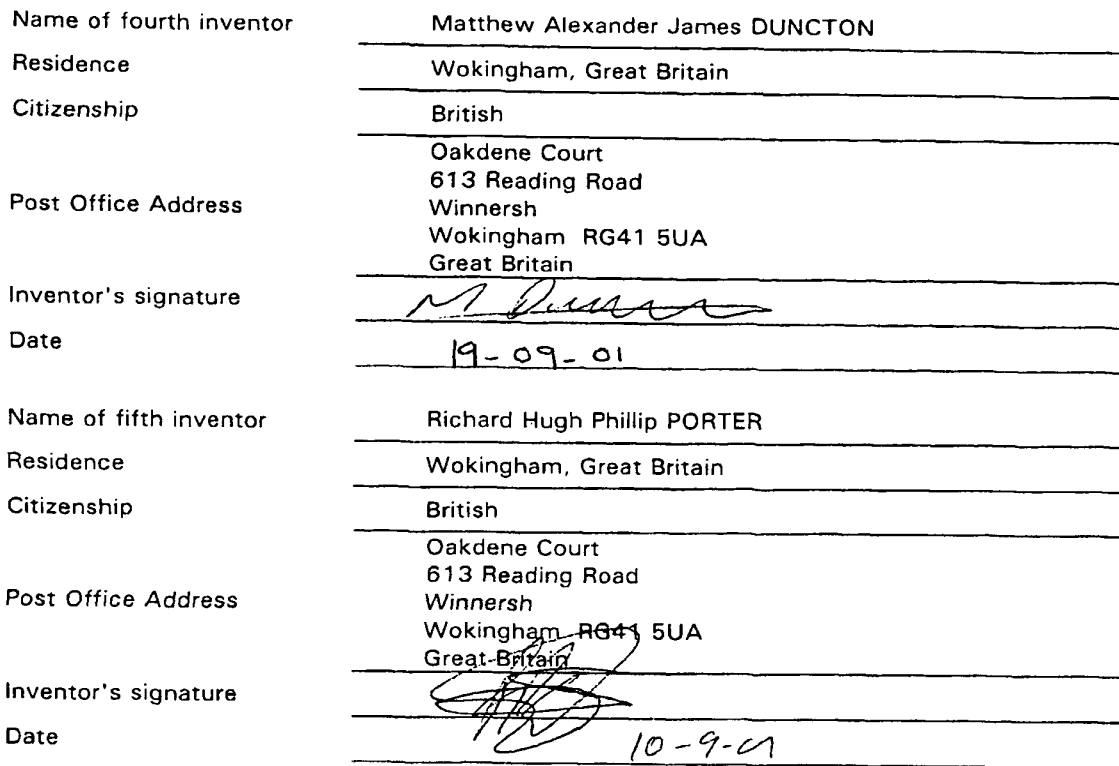 Name of fourth inventor Matthew Alexander James DUNCTON
Residence Wokingham, Great Britain
Citizenship British
Oakdene Court
613 Reading Road
Post Office Address Winnersh
Wokingham RG41 5UA
Great Britain
Inventor's signature M Duncton
Date 19-09-01
Name of fifth inventor Richard Hugh Phillip PORTER
Residence Wokingham, Great Britain
Citizenship British
Oakdene Court
613 Reading Road
Post Office Address Winnersh
Wokingham RG41 5UA
Great Britain
Inventor's signature
Date 10-9-01